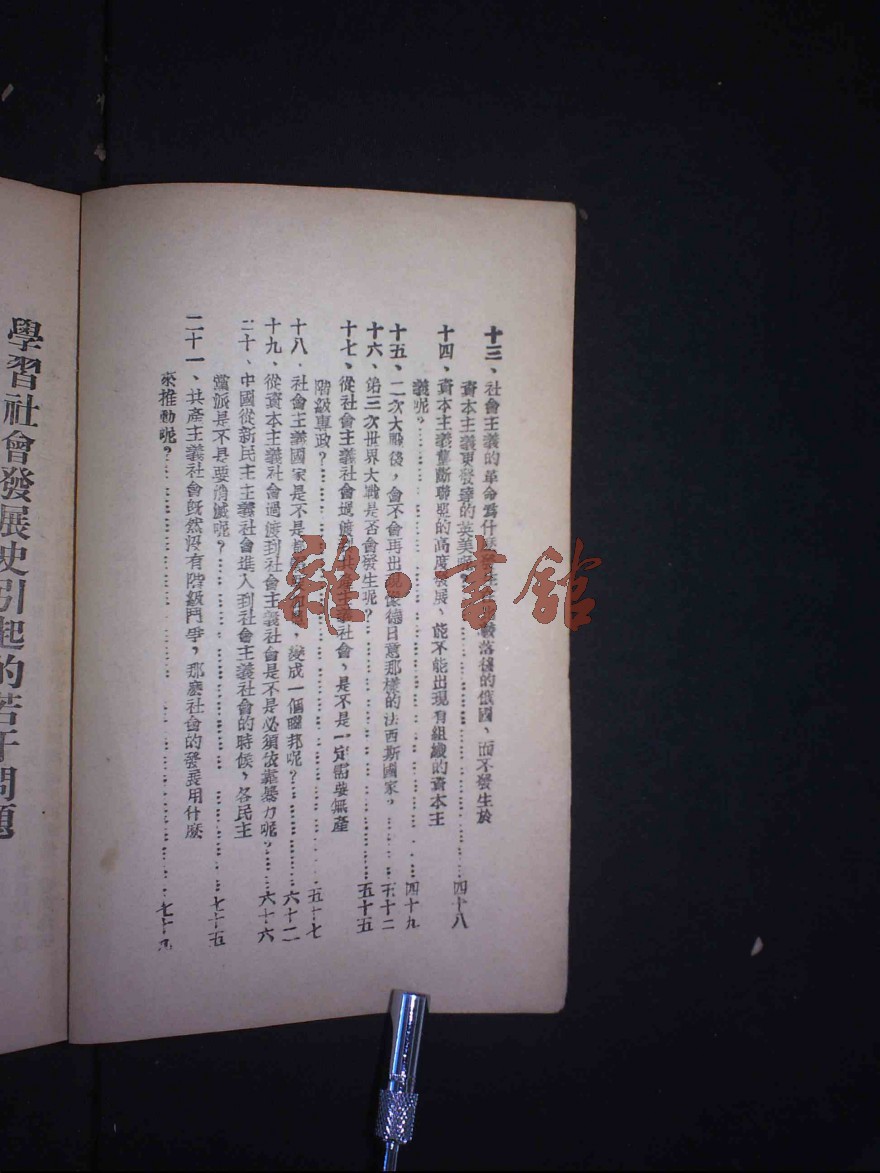 十三、社會主義的革命爲什麼落後的俄國，而不發生於
資本主義更發達的英美……四十八
十四、資本主義壟斷聯盟的高度發展，能不能出現有組織的資本主
義呢？……四十九
十五、二次大戰後，會不會再出現像德日意那樣的法西斯國家？……五十二
十六、第三次世界大戰是否會發生呢？……五十五
十七、從社會主義社會過渡到共產主義社會，是不是一定需要無產
階級專政？……五十七
十八、社會主義國家是不是，變成一個聯邦呢？……六十二
十九、從資本主義社會過渡到社會主義社會是不是必須依靠暴力呢？……六十六
二十、中國從新民主主義社會進入到社會主義社會的時候，各民主
黨派是不是要消滅呢？……七十五
二十一、共產主義社會既然沒有階級鬥爭，那麽社會的發展用什麽
來推動呢？……七十
學習社會發展史引起的若干問題
雜·書舘